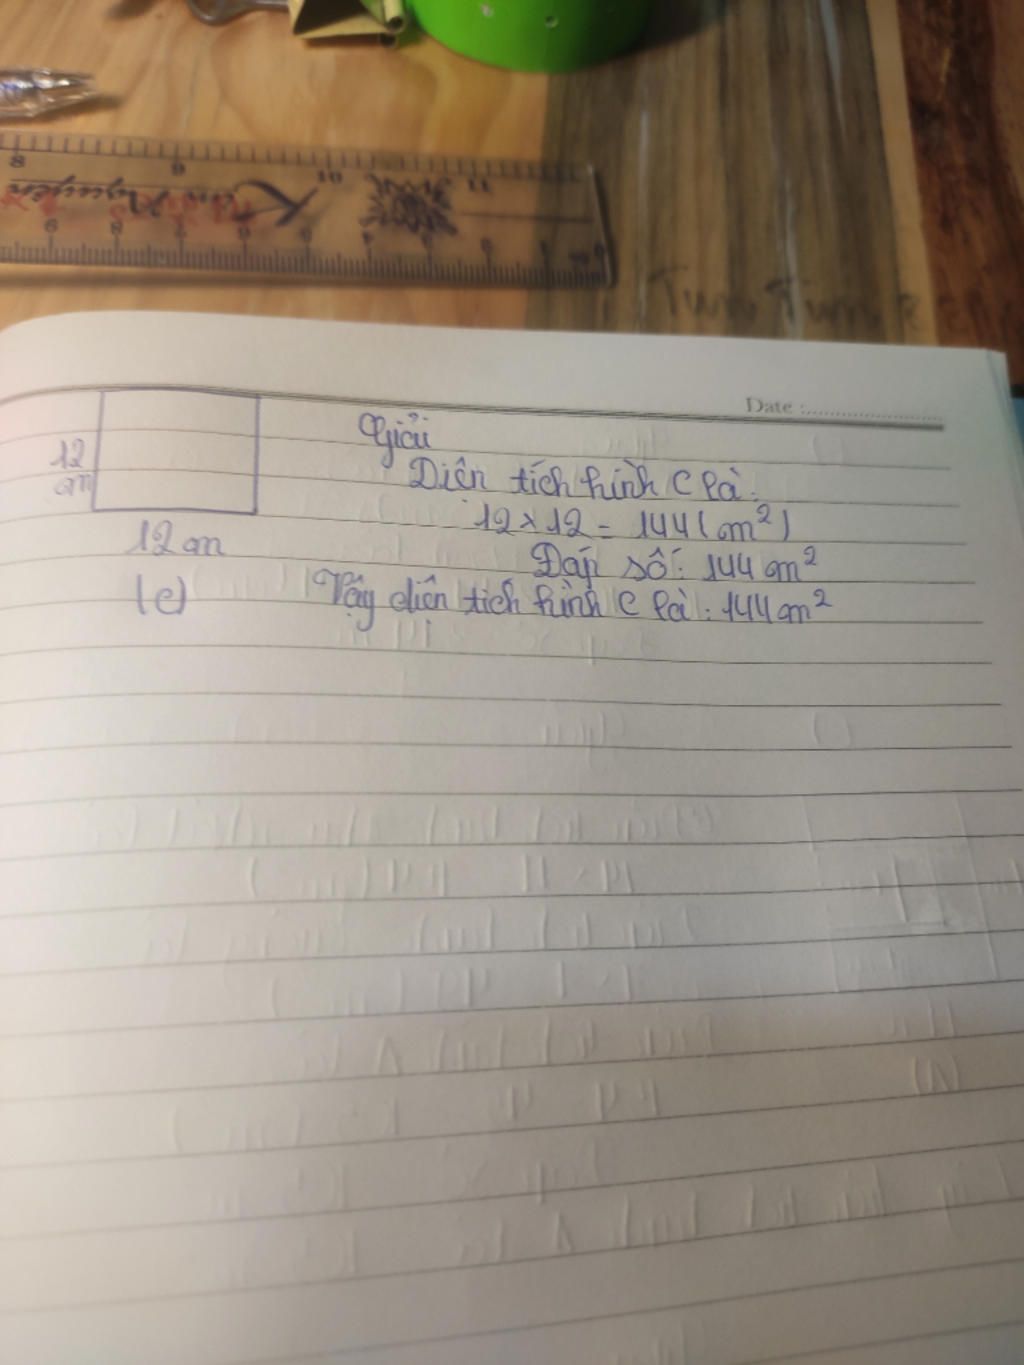 8 9 10 11
Nguyễn
9 8 7 6 5 4 3 2 1 0
Tum Tum
Date :
12
cm
12 cm
(c)
Giải
Diện tích hình C là:
12 x 12 = 144 (cm²)
Đáp số: 144 cm²
Vậy diện tích hình C là: 144 cm²